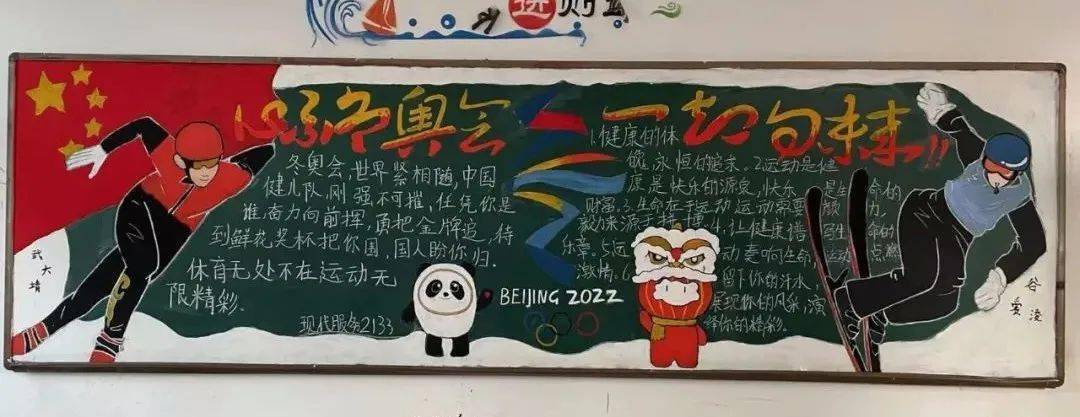 心系冬奥会 一起向未来!!
冬奥会,世界紧相随,中国
健儿队,刚强不可摧,任凭你是
谁奋力向前挥,勇把金牌追,待
到鲜花奖杯把你围,国人盼你归.
体育无处不在运动无
限精彩.
现代服务2133
武大靖
BEIJING 2022
1.健康的体
魄,永恒的追求.2.运动是健
康是快乐的源泉,快乐 是生命的
财富.3.生命在于运动 运动需要
4.让健康谱 生命的
乐章.5.运动 意向生命 运动点燃
激情.6 留下你的汗水,
展现你的风采,演
绎你的精彩.
谷爱凌